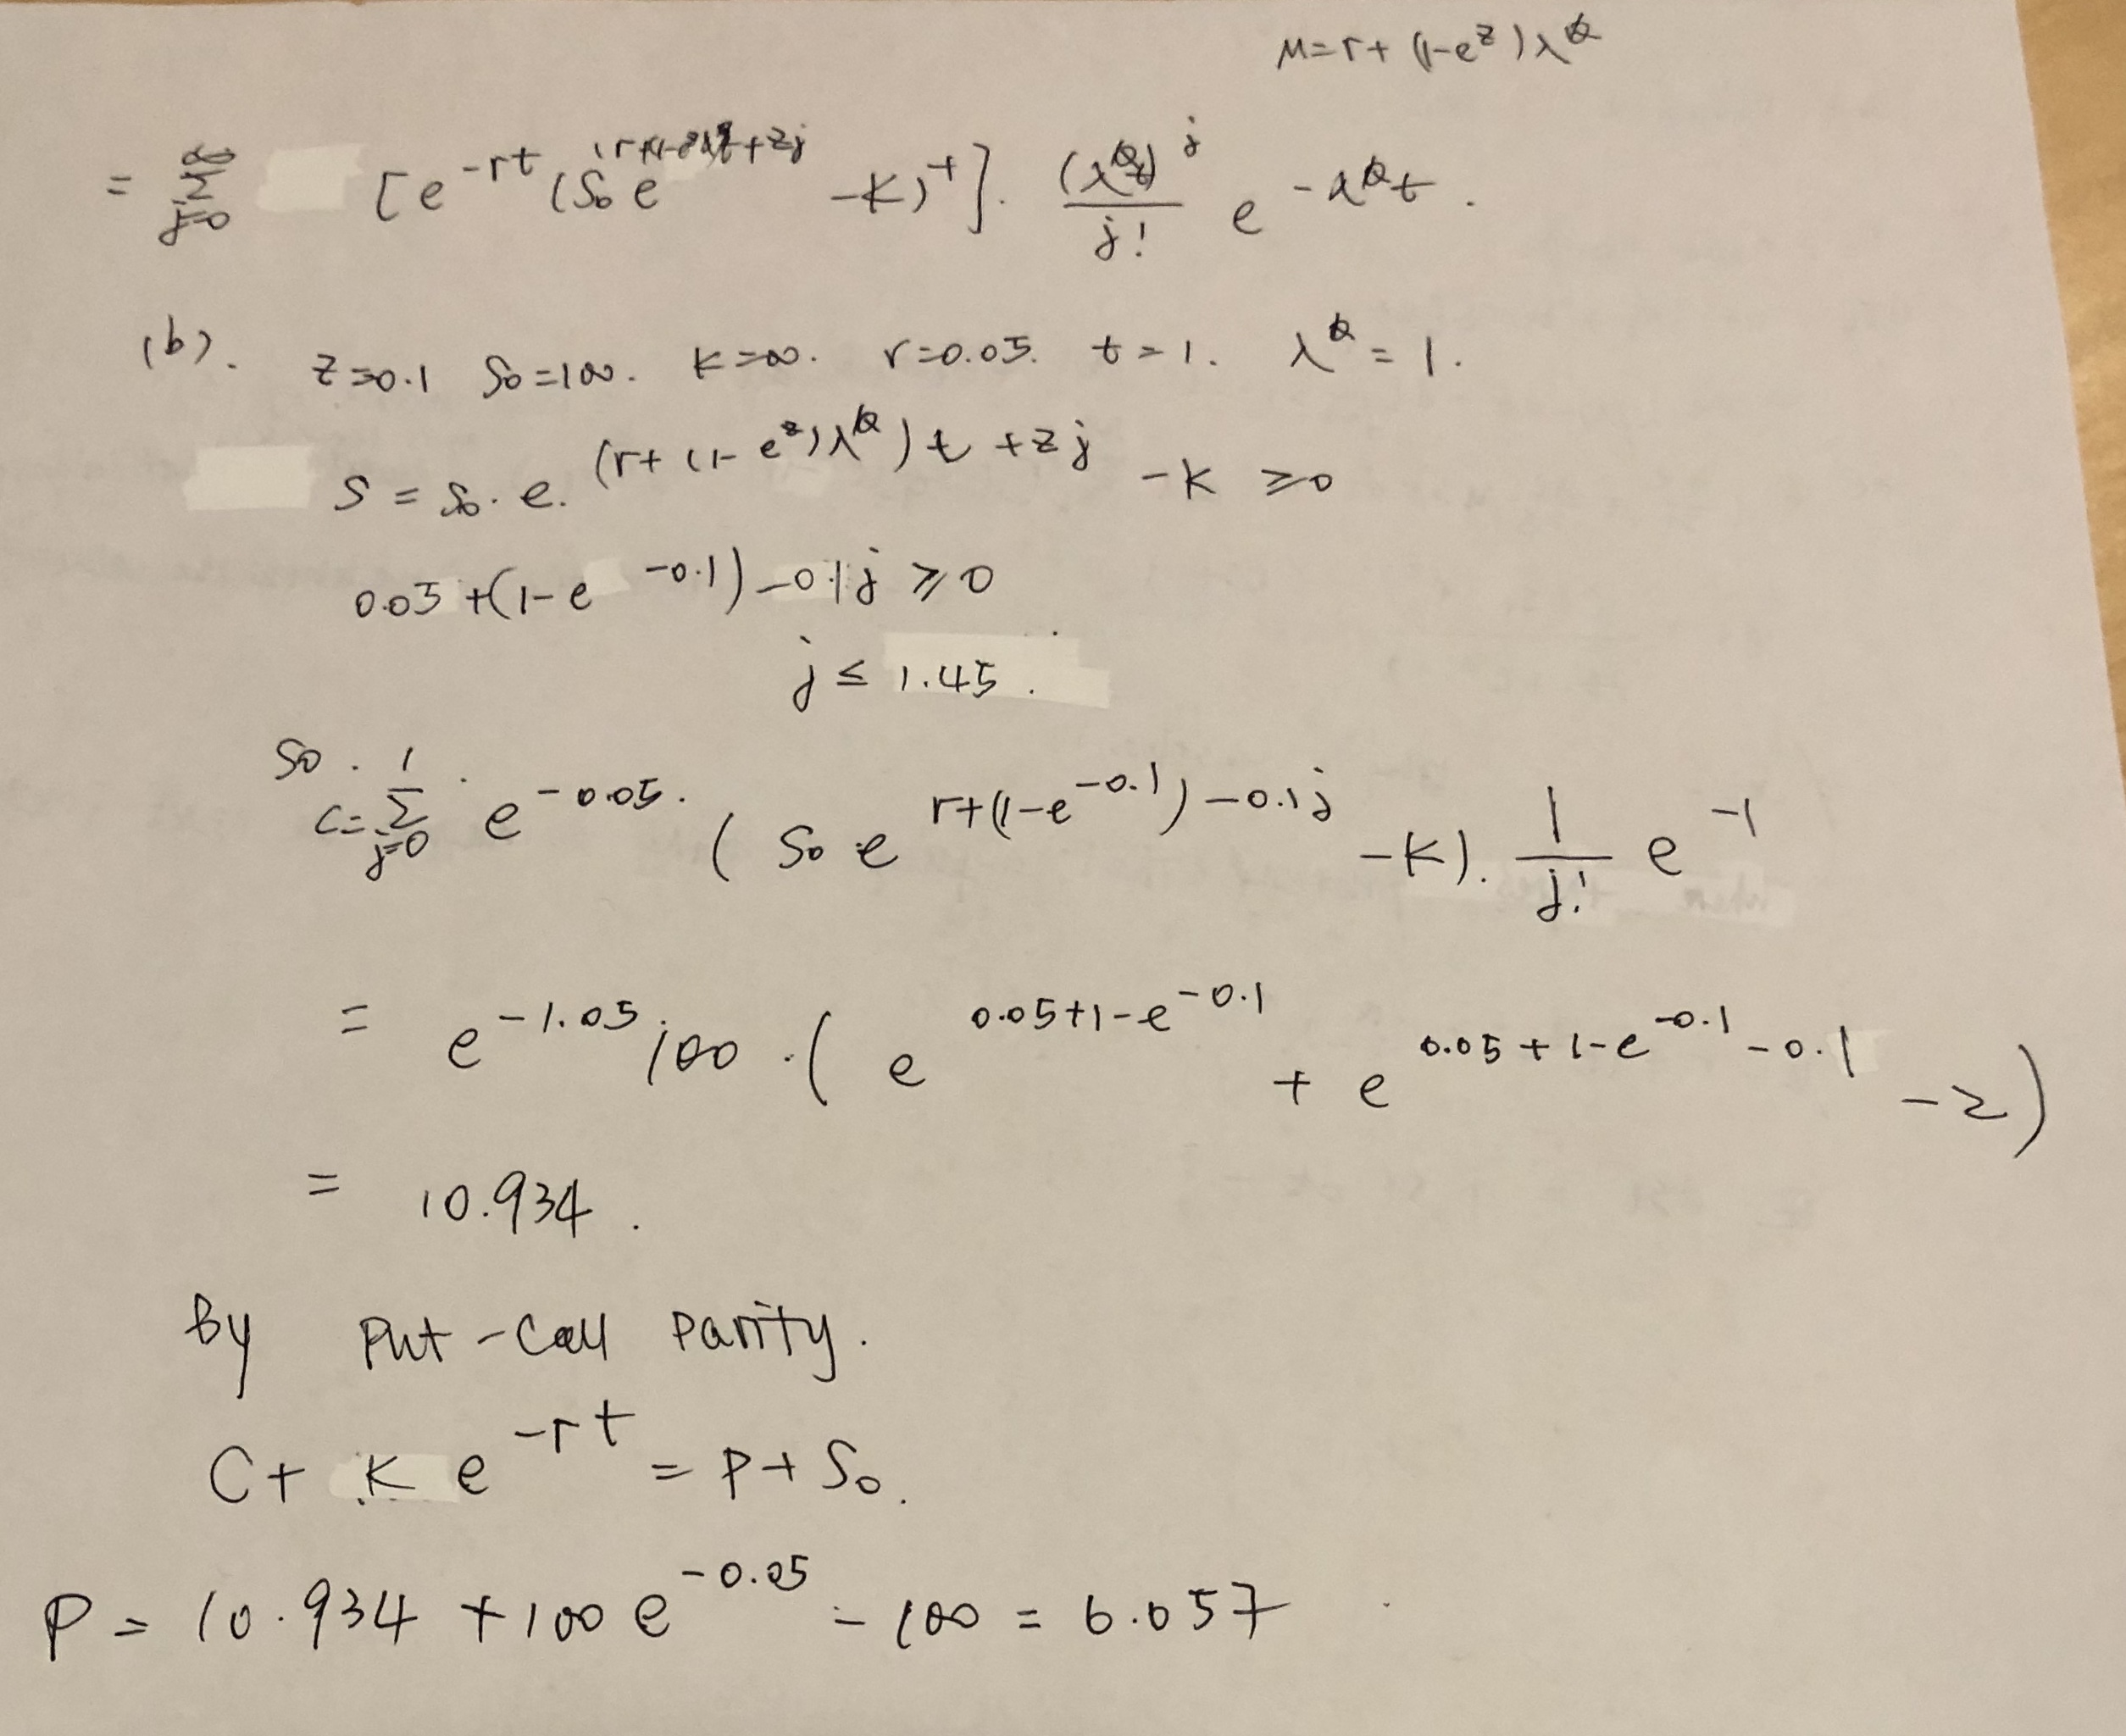 M=r+(1-e^z)λ^Q
= Σ_{j=0}^∞ [e^{-rt}(S₀e^{(r+(1-e^z)λ^Q)t+zj} -K)^+]. (λ^Q t)^j / j! e^{-λ^Q t}.
(b). z=0.1 S₀=100. K=100. r=0.05. t=1. λ^Q=1.
S = S₀.e.^{(r+(1-e^z)λ^Q)t+zj} -K ≥0
0.05+(1-e^{-0.1})-0.1j ≥0
j ≤ 1.45.
So. C=Σ_{j=0}^1 e^{-0.05}.(S₀e^{r+(1-e^{-0.1})-0.1j} -K). 1/j! e^{-1}
= e^{-1.05}.100.(e^{0.05+1-e^{-0.1}} + e^{0.05+1-e^{-0.1}-0.1} -2)
= 10.934.
By Put-Call Parity.
C+Ke^{-rt} = P+S₀.
P = 10.934 +100e^{-0.05} -100 = 6.057